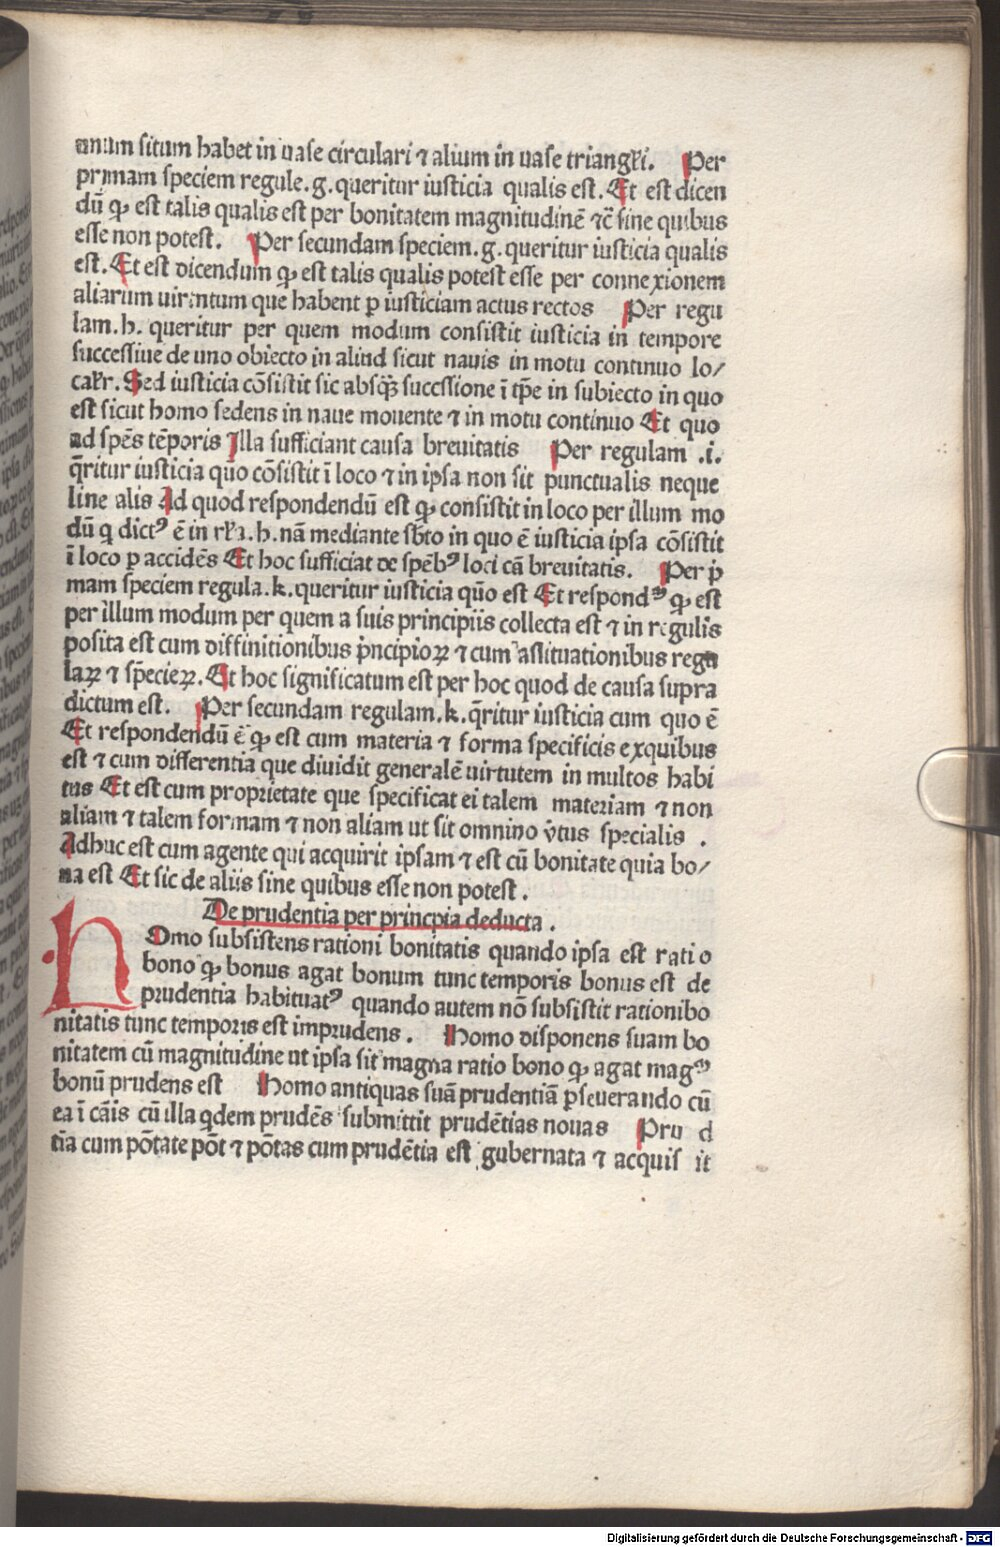 unum situm habet in uase circulari ⁊ alium in uase triangl̄i. Per
primam speciem regule.g.queritur iusticia qualis est.Et est dicen
dū ꝙ est talis qualis est per bonitatem magnitudinē ⁊c̄ sine quibus
esse non potest. Per secundam speciem.g.queritur iusticia qualis
est.Et est dicendum ꝙ est talis qualis potest esse per connexionem
aliarum uirtutum que habent p iusticiam actus rectos Per regu
lam.h. queritur per quem modum consistit iusticia in tempore
successiue de uno obiecto in aliud sicut nauis in motu continuo lo/
cal̄r.Sed iusticia cōsistit sic absqꝫ succssione ī tp̄e in subiecto in quo
est sicut homo sedens in naue mouente ⁊ in motu continuo Et quo
ad spēs tēporis Illa sufficiant causa breuitatis Per regulam .i.
q̄ritur iusticia quō cōsistit ī loco ⁊ in ipsa non sit punctualis neque
line alis Ad quod respondendū est ꝙ consistit in loco per illum mo
dū q dictꝰ ē in rl̄a.h.nā mediante sb̄to in quo ē iusticia ipsa cōsistit
ī loco p accidēs Et hoc sufficiat de spēbꝰ loci cā breuitatis. Per p̄
mam speciem regula.k.queritur iusticia quō est Et respondᵐ ꝙ est
per illum modum per quem a suis principiis collecta est ⁊ in regulis
posita est cum diffinitionibus p̄ncipioꝝ ⁊ cum assituationibus regu
laꝝ ⁊ sp̄cieꝝ.Et hoc significatum est per hoc quod de causa supra
dictum est. Per secundam regulam.k.q̄ritur iusticia cum quo ē
Et respondendū ē ꝙ est cum materia ⁊ forma specificis exquibus
est ⁊ cum differentia que diuidit generalē uirtutem in multos habi
tus Et est cum proprietate que specificat ei talem materiam ⁊ non
aliam ⁊ talem formam ⁊ non aliam ut sit omnino v̄tus specialis .
Adhuc est cum agente qui acquirit ipsam ⁊ est cū bonitate quia bo/
na est Et sic de aliis sine quibus esse non potest .
De prudentia per princpia deducta .
HOmo subsistens rationi bonitatis quando ipsa est ratio
bono ꝙ bonus agat bonum tunc temporis bonus est de
prudentia habituatꝰ quando autem nō subsistit rationibo
nitatis tunc temporis est imprudens . Homo disponens suam bo
nitatem cū magnitudine ut ipsa sit magna ratio bono ꝙ agat magᵐ
bonū prudens est Homo antiquas suā prudentiā pseuerando cū
ea ī cāis cū illa qdem prudēs submittit prudētias nouas Pru d
tia cum pōtate pōt ⁊ pōtas cum prudētia est gubernata ⁊ acquis it
Digitalisierung gefördert durch die Deutsche Forschungsgemeinschaft - DFG